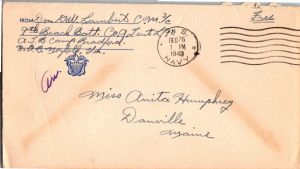 FROM Don D.W. Lambert C.M.3/c
9th Beach Batt. Co. 9
A.T.B Camp Bradford.
N.O.B Norfolk Va.
Free
U.S.
DEC 26
1 PM
1943
NAVY
Miss Anita Humphrey
Danville
Maine